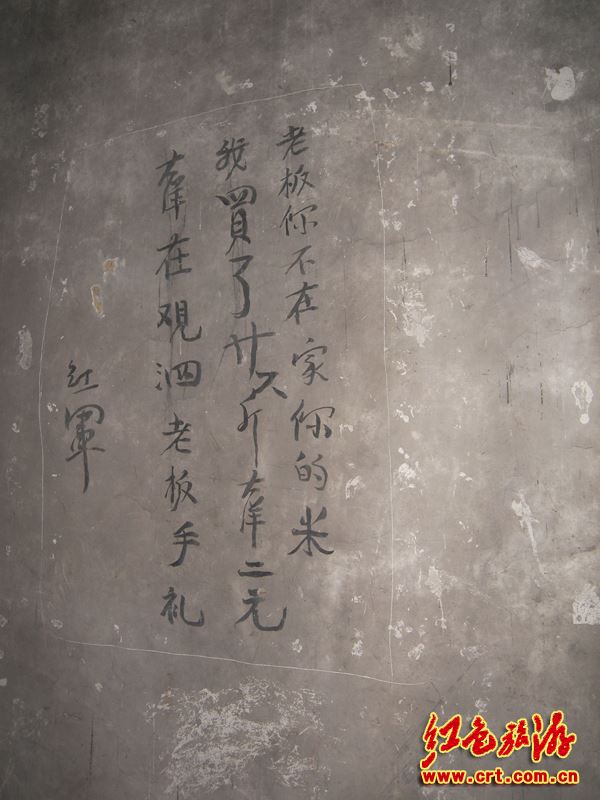 老板你不在家你的米
我買了廿六斤大洋二元
大洋在覌泗老板手礼
红軍
红色旅游
www.crt.com.cn